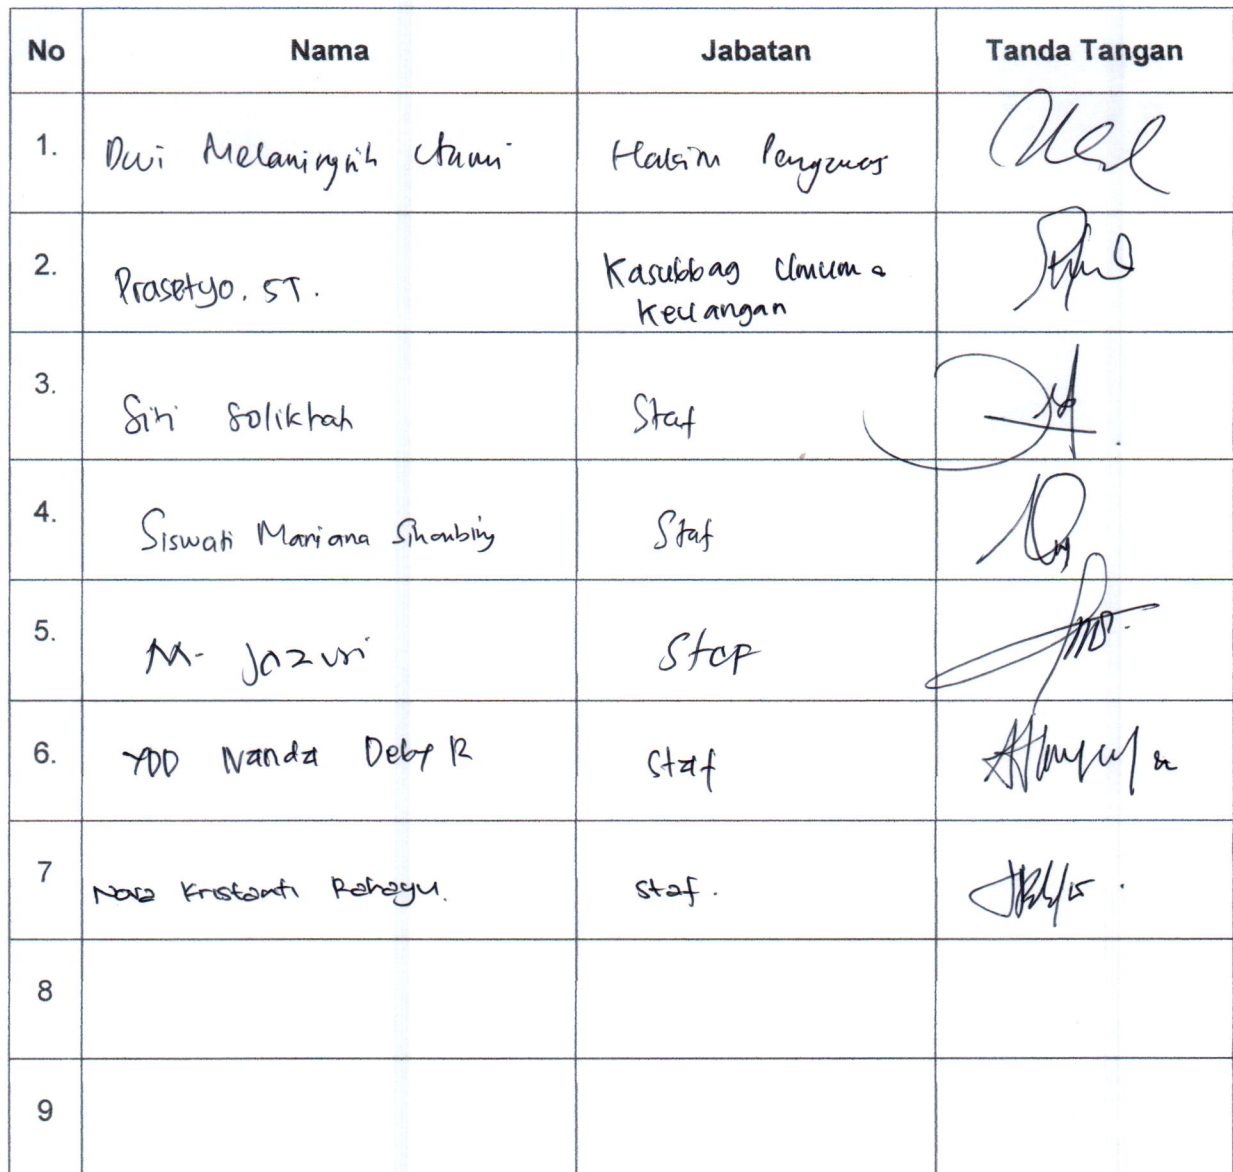 No Nama Jabatan Tanda Tangan
1. Dwi Melaningsih Utami Hakim Pengawas
2. Prasetyo. ST. Kasubbag Umum &
Keuangan
3. Siti Solikhah Staf
4. Siswati Mariana Sihombing Staf
5. M. Jazuri Staf
6. YDD Nanda Deby R Staf
7 Nova Kristanti Rahayu. Staf.
8
9